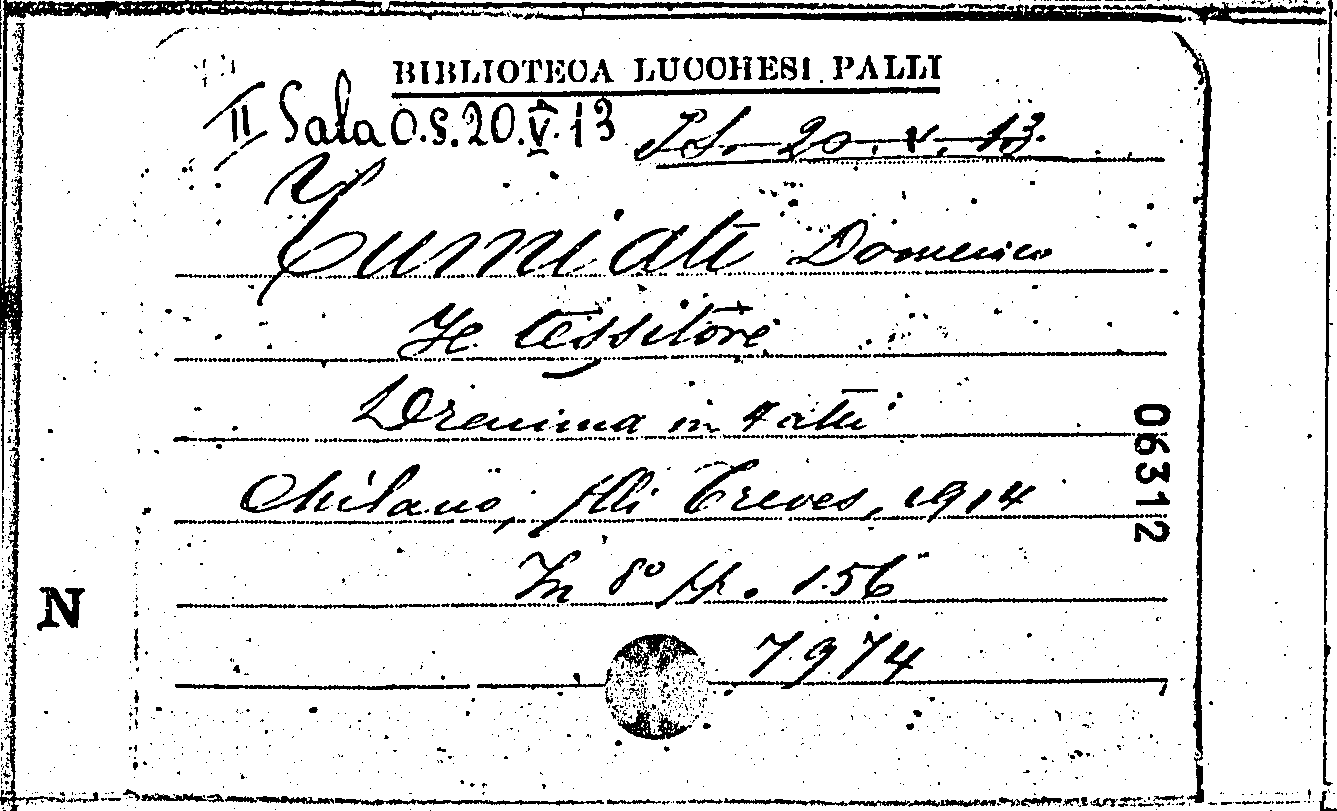 BIBLIOTECA LUCCHESI PALLI
II Sala O.S.20.V.13 P.S. 20. V. 13.
Tumiati Domenico
Il tessitore
Dramma in 4 atti
Milano, flli Treves, 1914
In 8° pp. 156
7974
06312
N